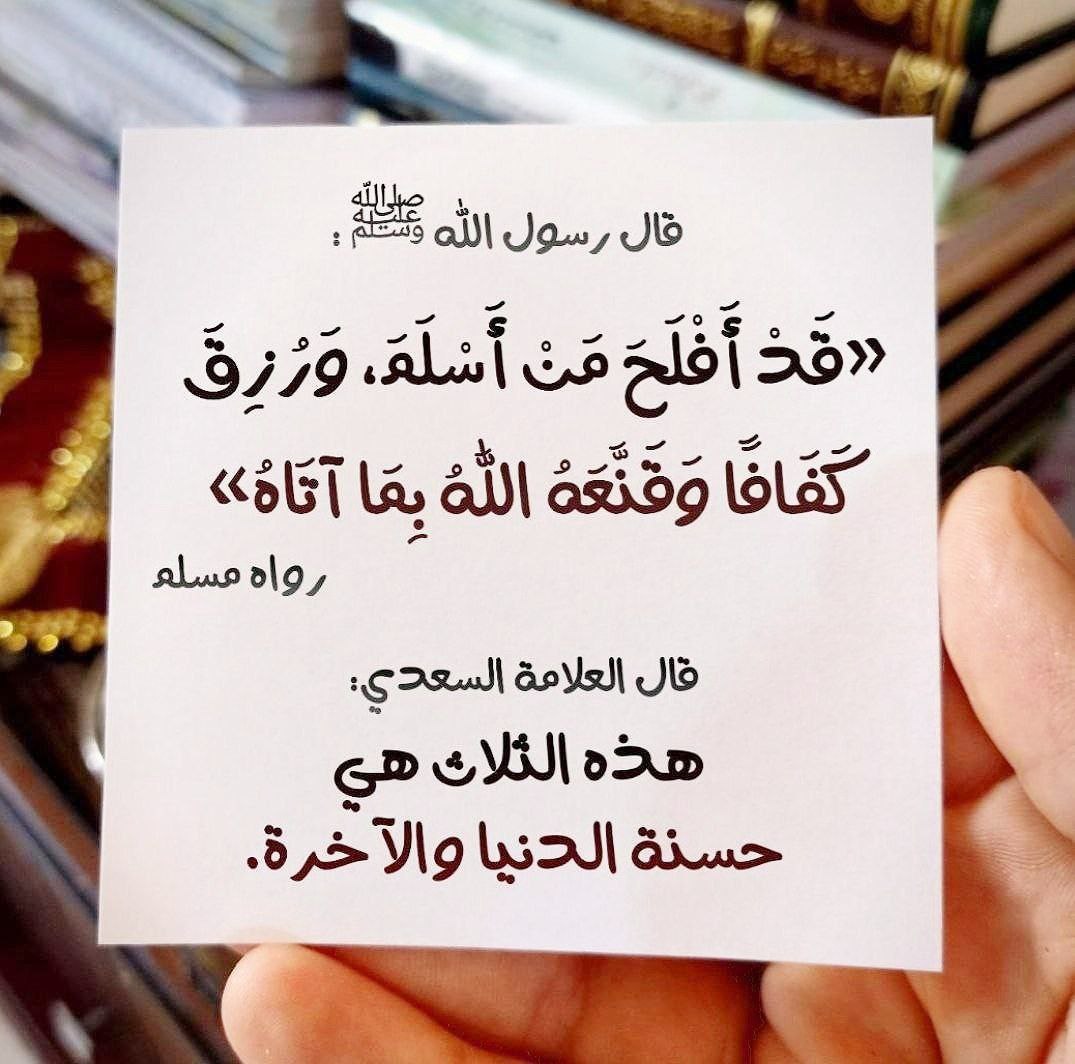 قال رسول الله ﷺ :
«قَدْ أَفْلَحَ مَنْ أَسْلَمَ، وَرُزِقَ
كَفَافًا وَقَنَّعَهُ اللَّهُ بِمَا آتَاهُ»
رواه مسلم
قال العلامة السعدي:
هذه الثلاث هي
حسنة الدنيا والآخرة.